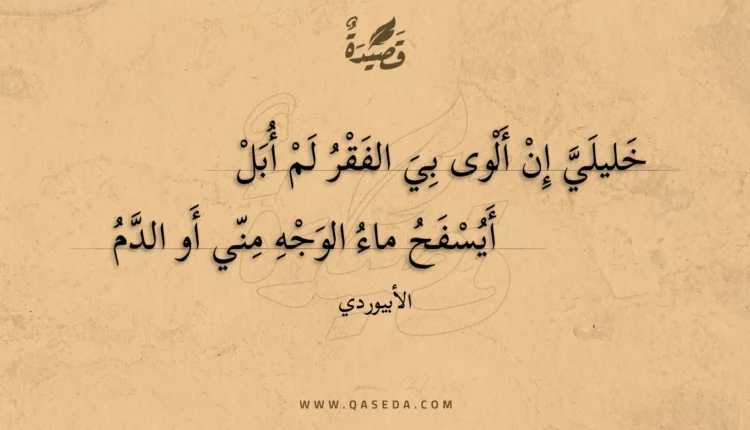 قَصِيدَةٌ
خَليلَيَّ إِنْ أَلْوى بِيَ الفَقْرُ لَمْ أُبَلْ
أَيُسْفَحُ ماءُ الوَجْهِ مِنّي أَو الدَّمُ
الأبيوردي
WWW.QASEDA.COM